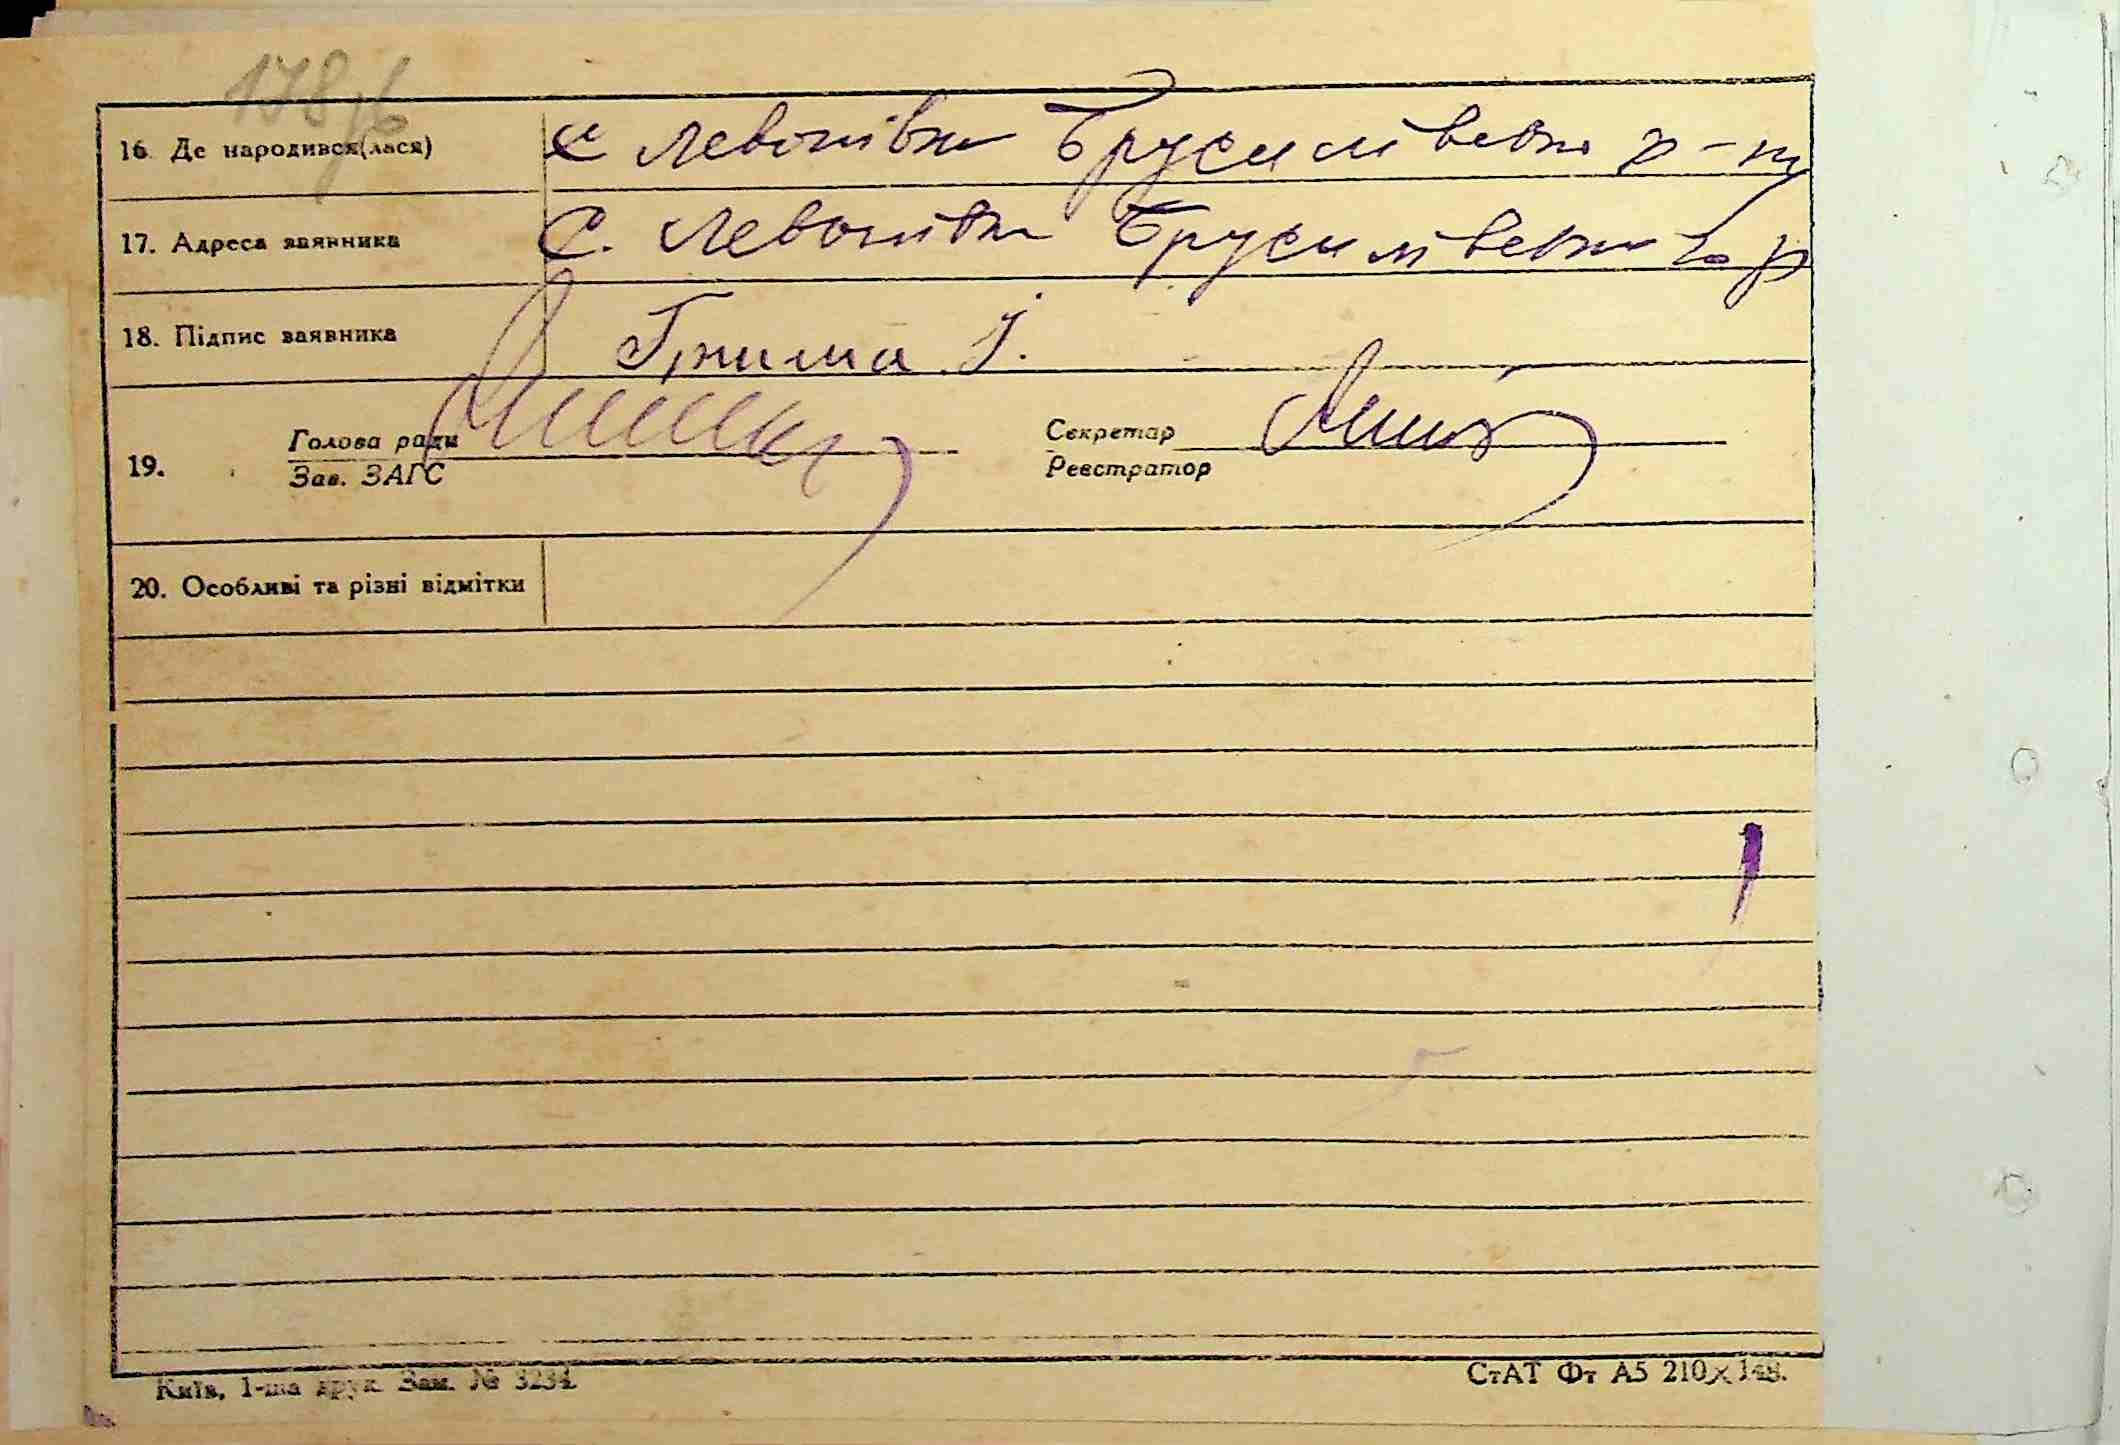 178зв
16. Де народився(лася) с Левонівка Брусилівського р-ну
17. Адреса заявника С. Левонівка Брусилівського р
18. Підпис заявника Грима І.
19. Голова ради Секретар
Зав. ЗАГС Реєстратор
20. Особливі та різні відмітки
Київ, 1-ша друк. Зам. № 3234. СтАТ Фт А5 210×148.